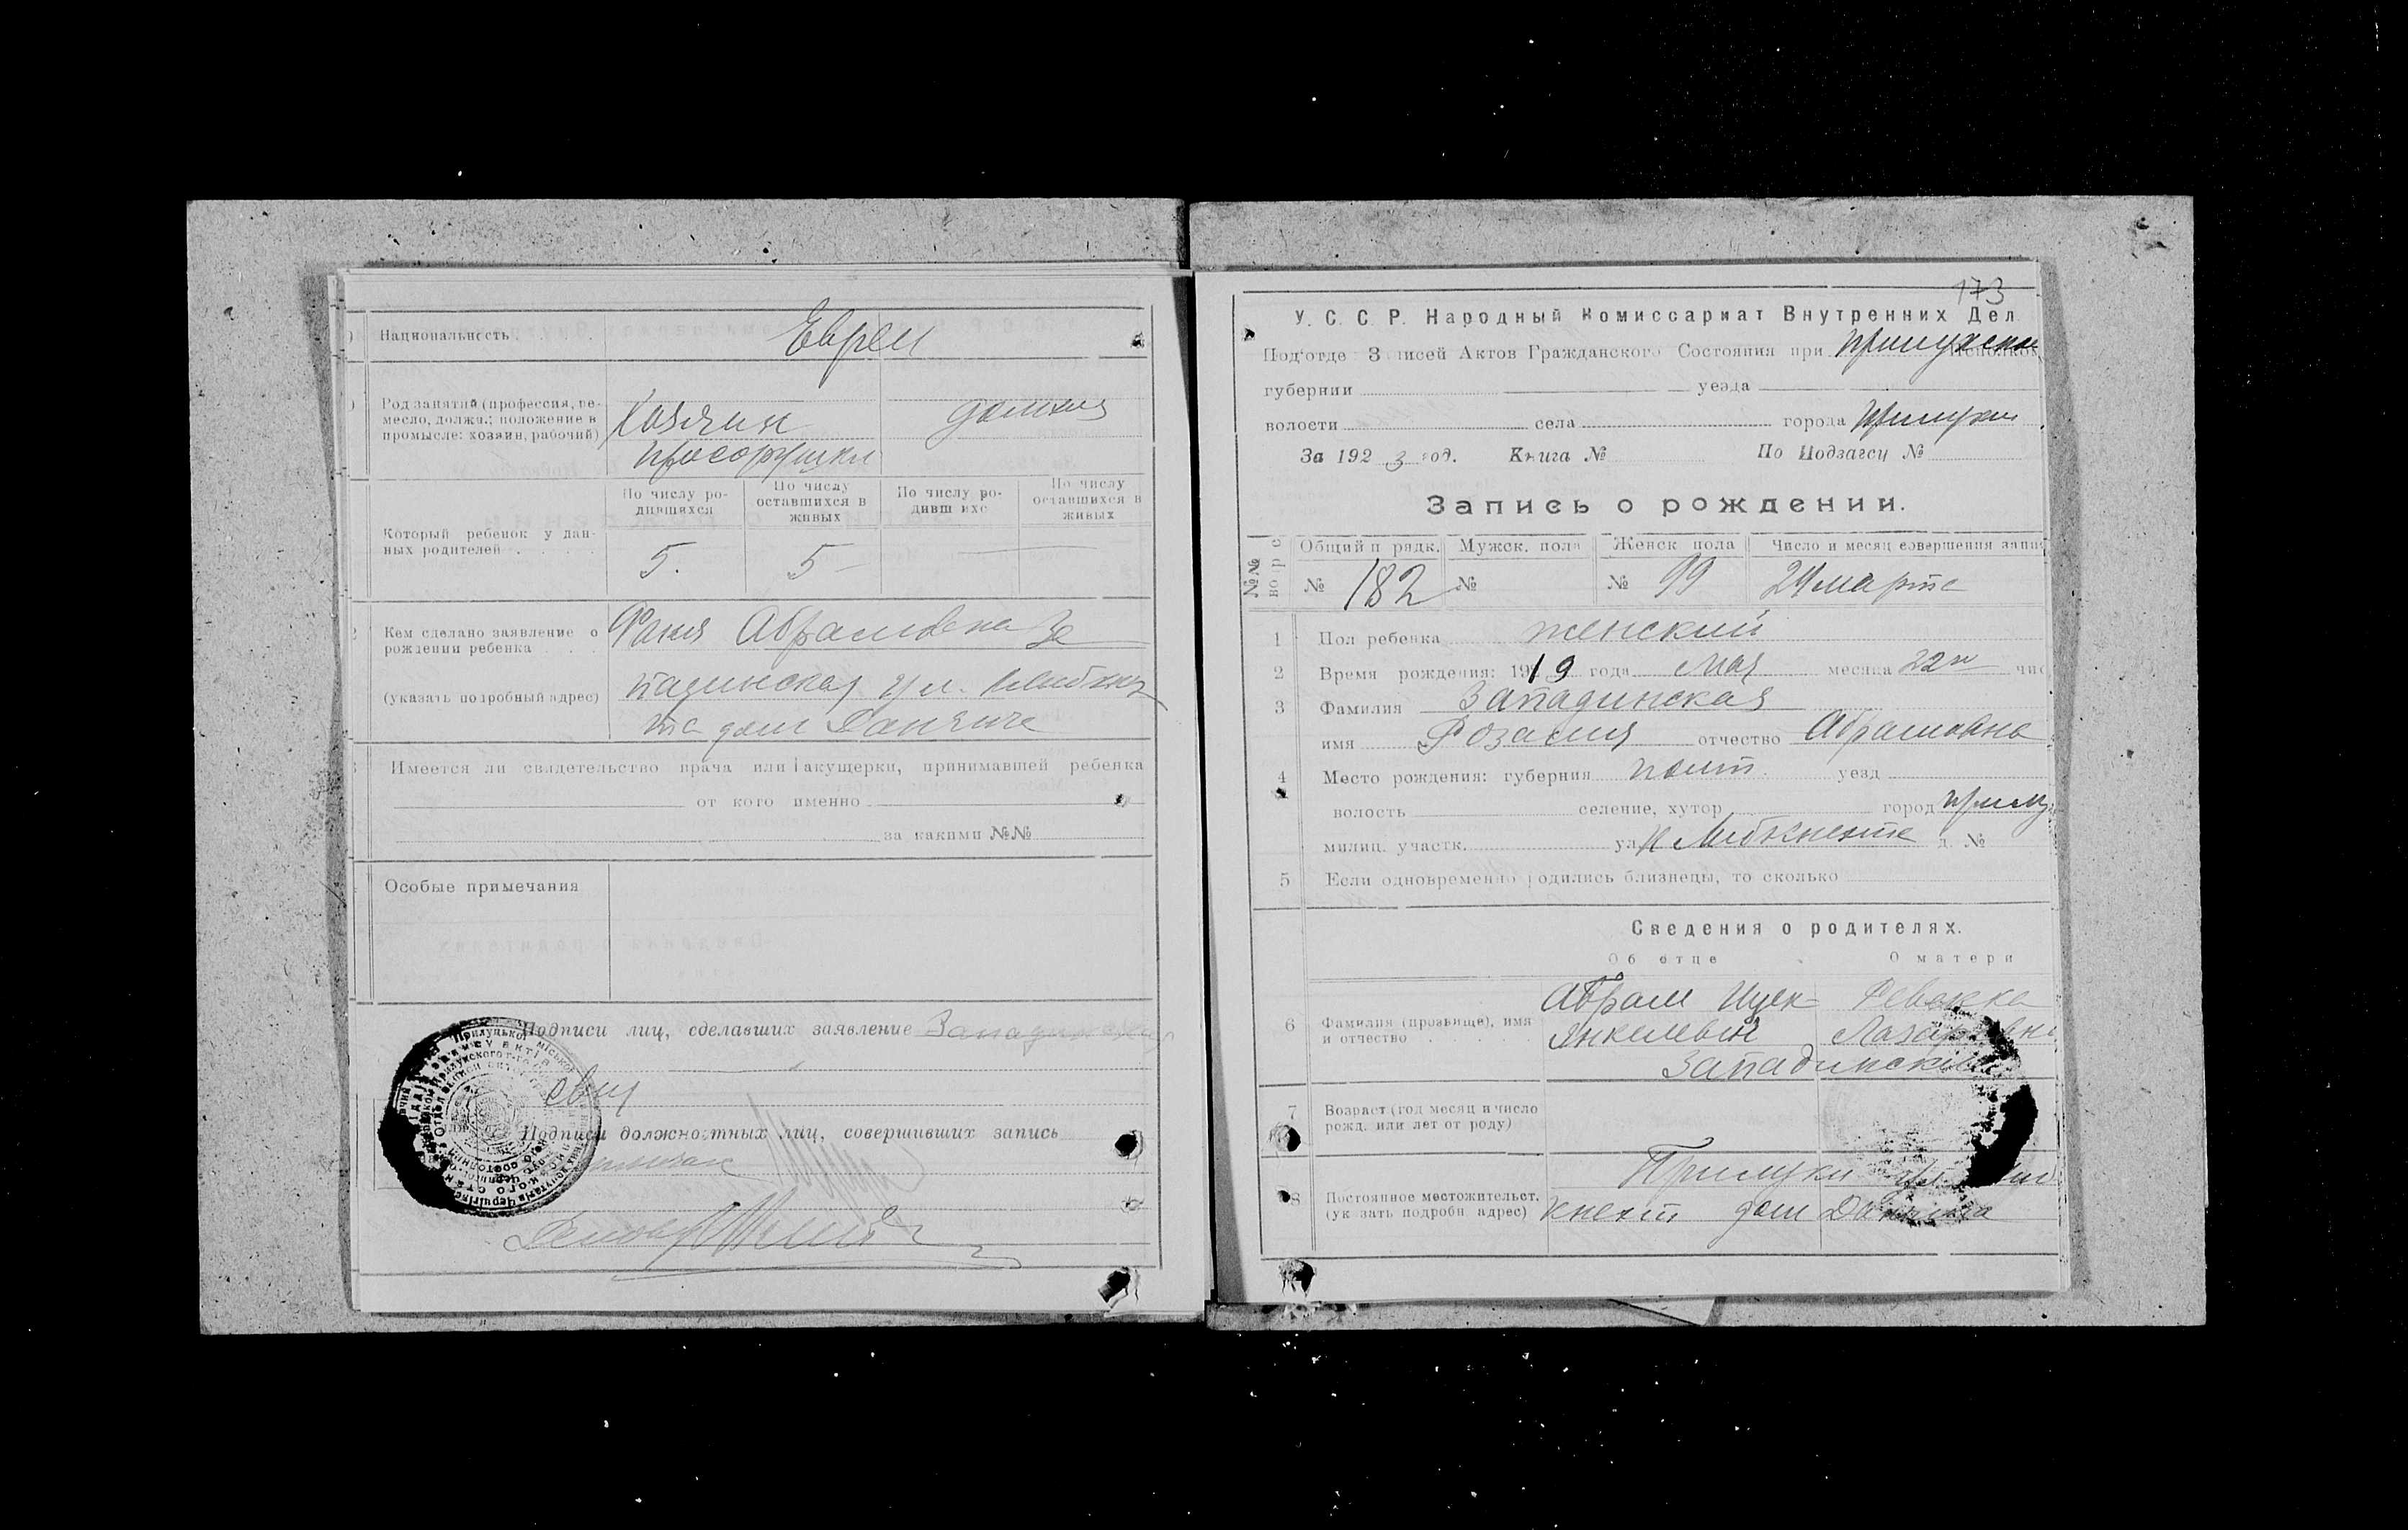 Национальность
Евреи
Род занятий (профессия, ре-
месло, должн.; положение в
промысле: хозяин, рабочий)
Хозяин
просорушки
домхоз
Который ребенок у дан-
ных родителей
По числу ро-
дившихся
По числу
оставшихся в
живых
По числу ро-
дивш ихс
По числу
оставшихся в
живых
5.
5
Кем сделано заявление о
рождении ребенка
(указать подробный адрес)
Фаня Абрамовна За
падинская ул. Либкнех
та дом
Имеется ли свидетельство врача или акушерки, принимавшей ребенка
от кого именно
за какими №№
Особые примечания
Подписи лиц, сделавших заявление
Подписи должностных лиц, совершивших запись
173
У. С. С. Р. Народный Комиссариат Внутренних Дел
Под'отде Записей Актов Гражданского Состояния при Прилукском
губернии уезда
волости села города Прилуки
За 1923 год. Книга № По Подзагсу №
Запись о рождении.
№№
Общий п рядк.
Мужск. пола
Женск пола
Число и месяц совершения запи
№ 182
№
№ 99
24 марта
1 Пол ребенка женский
2 Время рождения: 1919 года Мая месяца 22 чис
3 Фамилия Западинская
имя Розалия отчество Абрамовна
4 Место рождения: губерния Полт уезд
волость селение, хутор город Прилу
милиц. участк. ул К Либкнехта д. №
5 Если одновременно родились близнецы, то сколько
Сведения о родителях.
Об отце
О матери
6 Фамилия (прозвище), имя
и отчество
Абрам Ицек
Янкелевич
Ревекка
Лазаревна
Западинские
7 Возраст (год месяц и число
рожд. или лет от роду)
8 Постоянное местожительст.
(ук зать подробн адрес)
Прилуки ул. Либ
кнехт дом